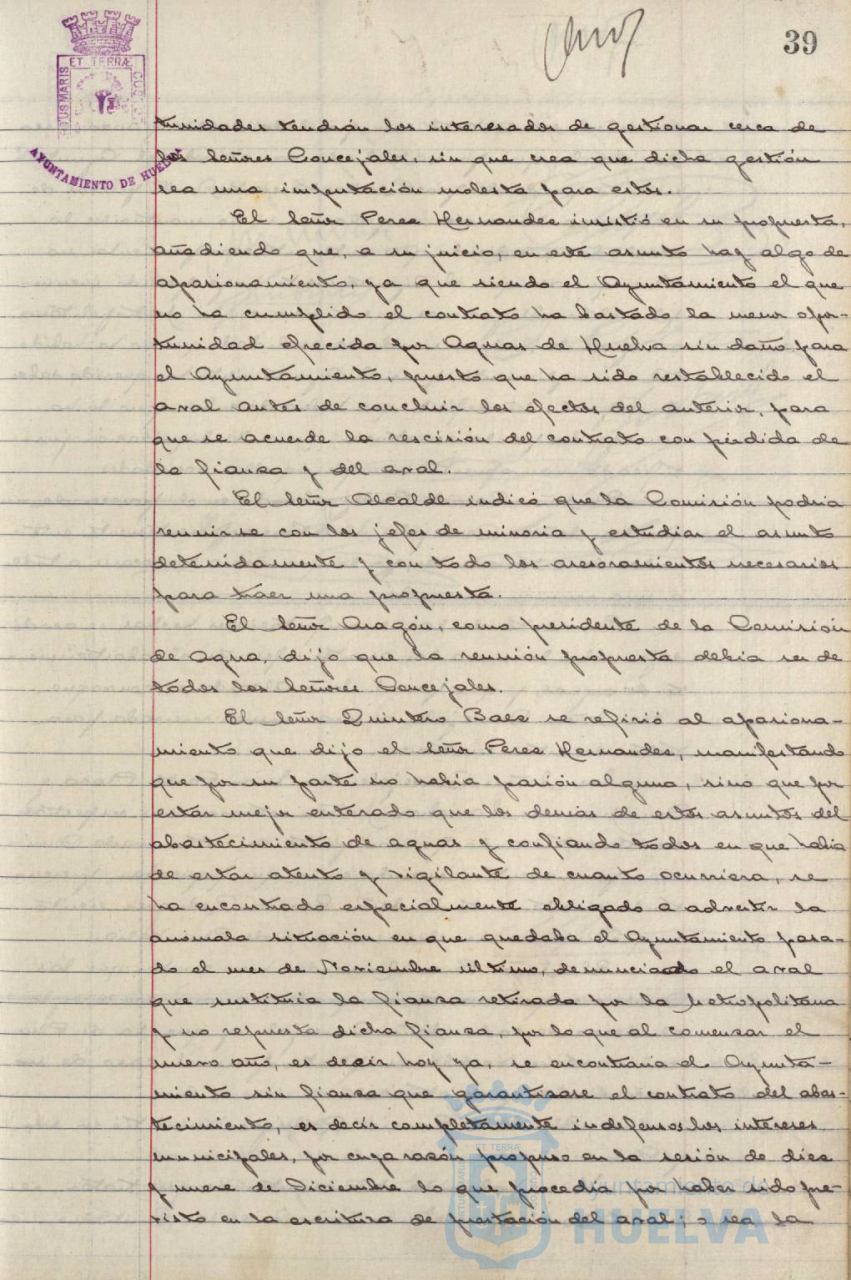 39
PORTUS MARIS ET TERRÆ CUSTODIA
AYUNTAMIENTO DE HUELVA
tunidades tendrán los interesados de gestionar cerca de
los señores Concejales, sin que crea que dicha gestión
sea una imputación molesta para estos.
El señor Perez Hernandez insistió en su propuesta,
añadiendo que, a su juicio, en este asunto hay algo de
apasionamiento, ya que siendo el Ayuntamiento el que
no ha cumplido el contrato ha bastado la menor opor-
tunidad ofrecida por Aguas de Huelva sin daño para
el Ayuntamiento, puesto que ha sido restablecido el
aval antes de concluir los efectos del anterior, para
que se acuerde la rescisión del contrato con pérdida de
la fianza y del aval.
El señor Alcalde indicó que la Comisión podria
reunirse con los jefes de minoria y estudiar el asunto
detenidamente y con todo los asesoramientos necesarios
para traer una propuesta.
El señor Aragón, como presidente de la Comisión
de Agua, dijo que la reunión propuesta debia ser de
todos los señores Concejales.
El señor Quintero Baez se refirió al apasiona-
miento que dijo el señor Perez Hernandez, manifestando
que por su parte no habia pasión alguna, sino que por
estar mejor enterado que los demás de estos asuntos del
abastecimiento de aguas y confiando todos en que habia
de estar atento y vigilante de cuanto ocurriera, se
ha encontrado especialmente obligado a advertir la
anómala situación en que quedaba el Ayuntamiento pasa-
do el mes de Noviembre último, denunciado el aval
que sustituia la fianza retirada por la Metropolitana
y no repuesta dicha fianza, por lo que al comenzar el
nuevo año, es decir hoy ya, se encontraria el Ayunta-
miento sin fianza que garantizase el contrato del abas-
tecimiento, es decir completamente indefensos los intereses
municipales, por cuya razón propuso en la sesión de diez
y nueve de Diciembre lo que procedia por haber sido pre-
visto en la escritura de prestación del aval; o sea la
Ayuntamiento de
HUELVA